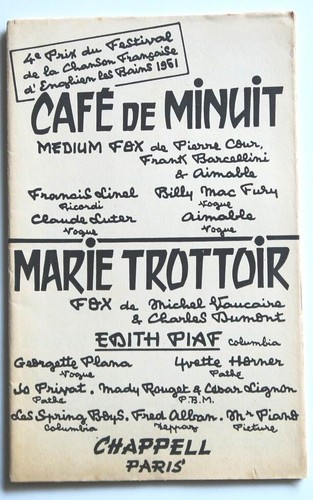 4e Prix du Festival
de la Chanson Française
d'Enghien les Bains 1961
CAFÉ DE MINUIT
MEDIUM FOX de Pierre Cour,
Frank Barcellini
& Aimable
Francis Linel Billy Mac Fury
Ricordi Vogue
Claude Luter Aimable
Vogue Vogue
MARIE TROTTOIR
FOX de Michel Vaucaire
& Charles Dumont
EDITH PIAF Columbia
Georgette Plana Yvette Horner
Vogue Pathé
Jo Privat. Mady Rouget & César Lignon
Pathé P.B.M.
Les Spring Boys. Fred Alban. Mr Piano
Columbia Teppaz Picture
CHAPPELL
PARIS